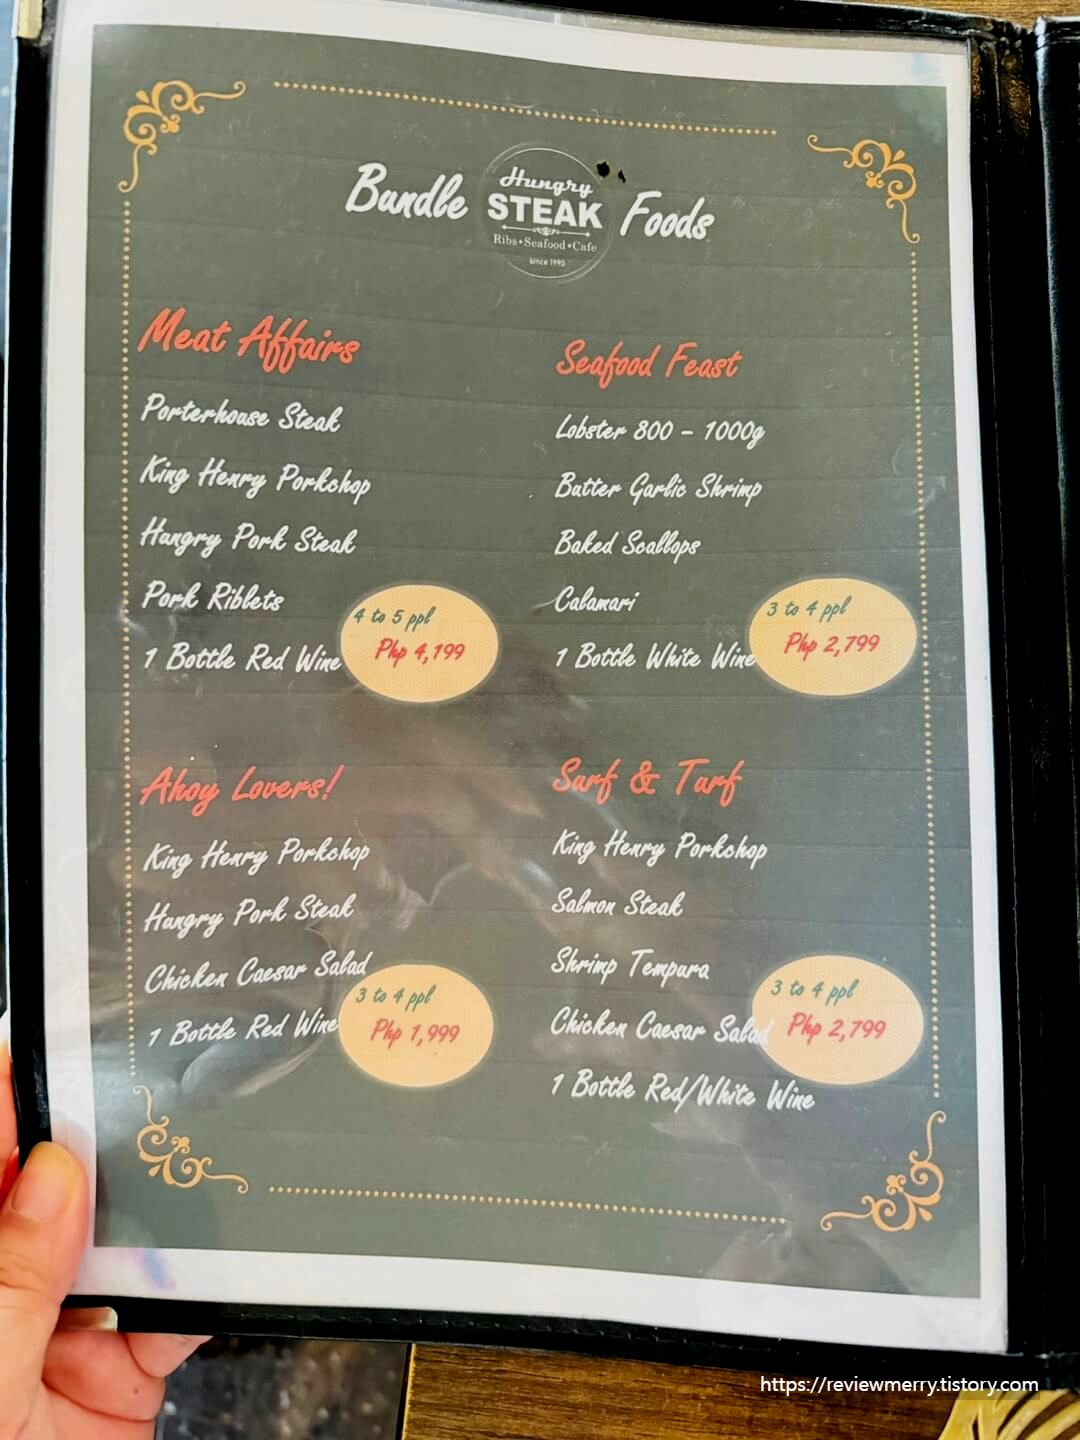 Bundle Hungry STEAK Foods
Ribs•Seafood•Cafe
since 1990
Meat Affairs
Porterhouse Steak
King Henry Porkchop
Hungry Pork Steak
Pork Riblets
1 Bottle Red Wine
4 to 5 ppl
Php 4,199
Seafood Feast
Lobster 800 - 1000g
Butter Garlic Shrimp
Baked Scallops
Calamari
1 Bottle White Wine
3 to 4 ppl
Php 2,799
Ahoy Lovers!
King Henry Porkchop
Hungry Pork Steak
Chicken Caesar Salad
1 Bottle Red Wine
3 to 4 ppl
Php 1,999
Surf & Turf
King Henry Porkchop
Salmon Steak
Shrimp Tempura
Chicken Caesar Salad
1 Bottle Red/White Wine
3 to 4 ppl
Php 2,799
https://reviewmerry.tistory.com